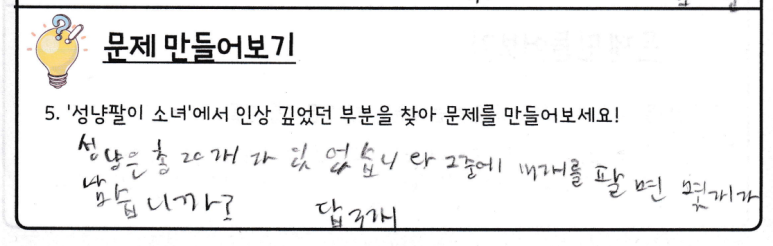 문제 만들어보기
5. '성냥팔이 소녀'에서 인상 깊었던 부분을 찾아 문제를 만들어보세요!
성냥은 총 20개가 있었습니다 그중에 개를 팔면 몇개가
남습니까? 답 3개